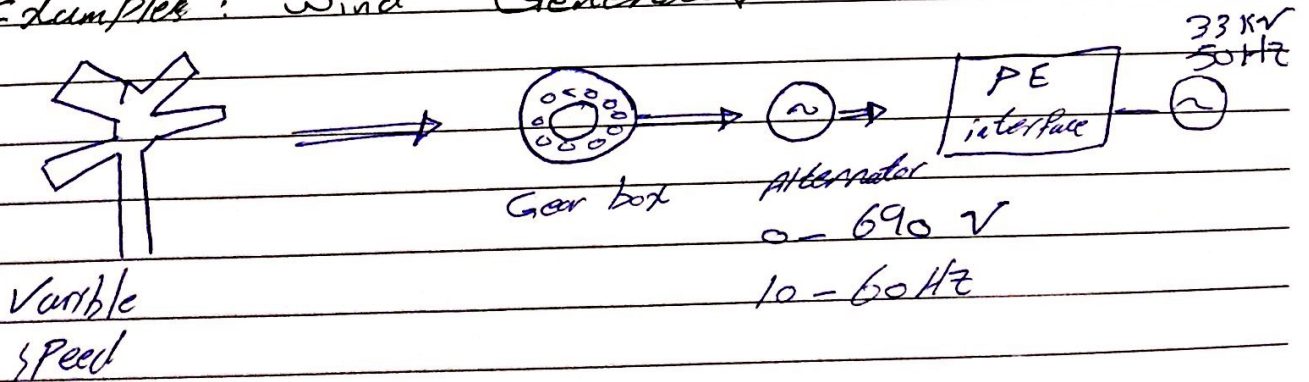 Examples : Wind
33 KV
50HZ
PE
interface
Gear box
Alternator
0- 690 V
10 - 60 HZ
Varible
Speed